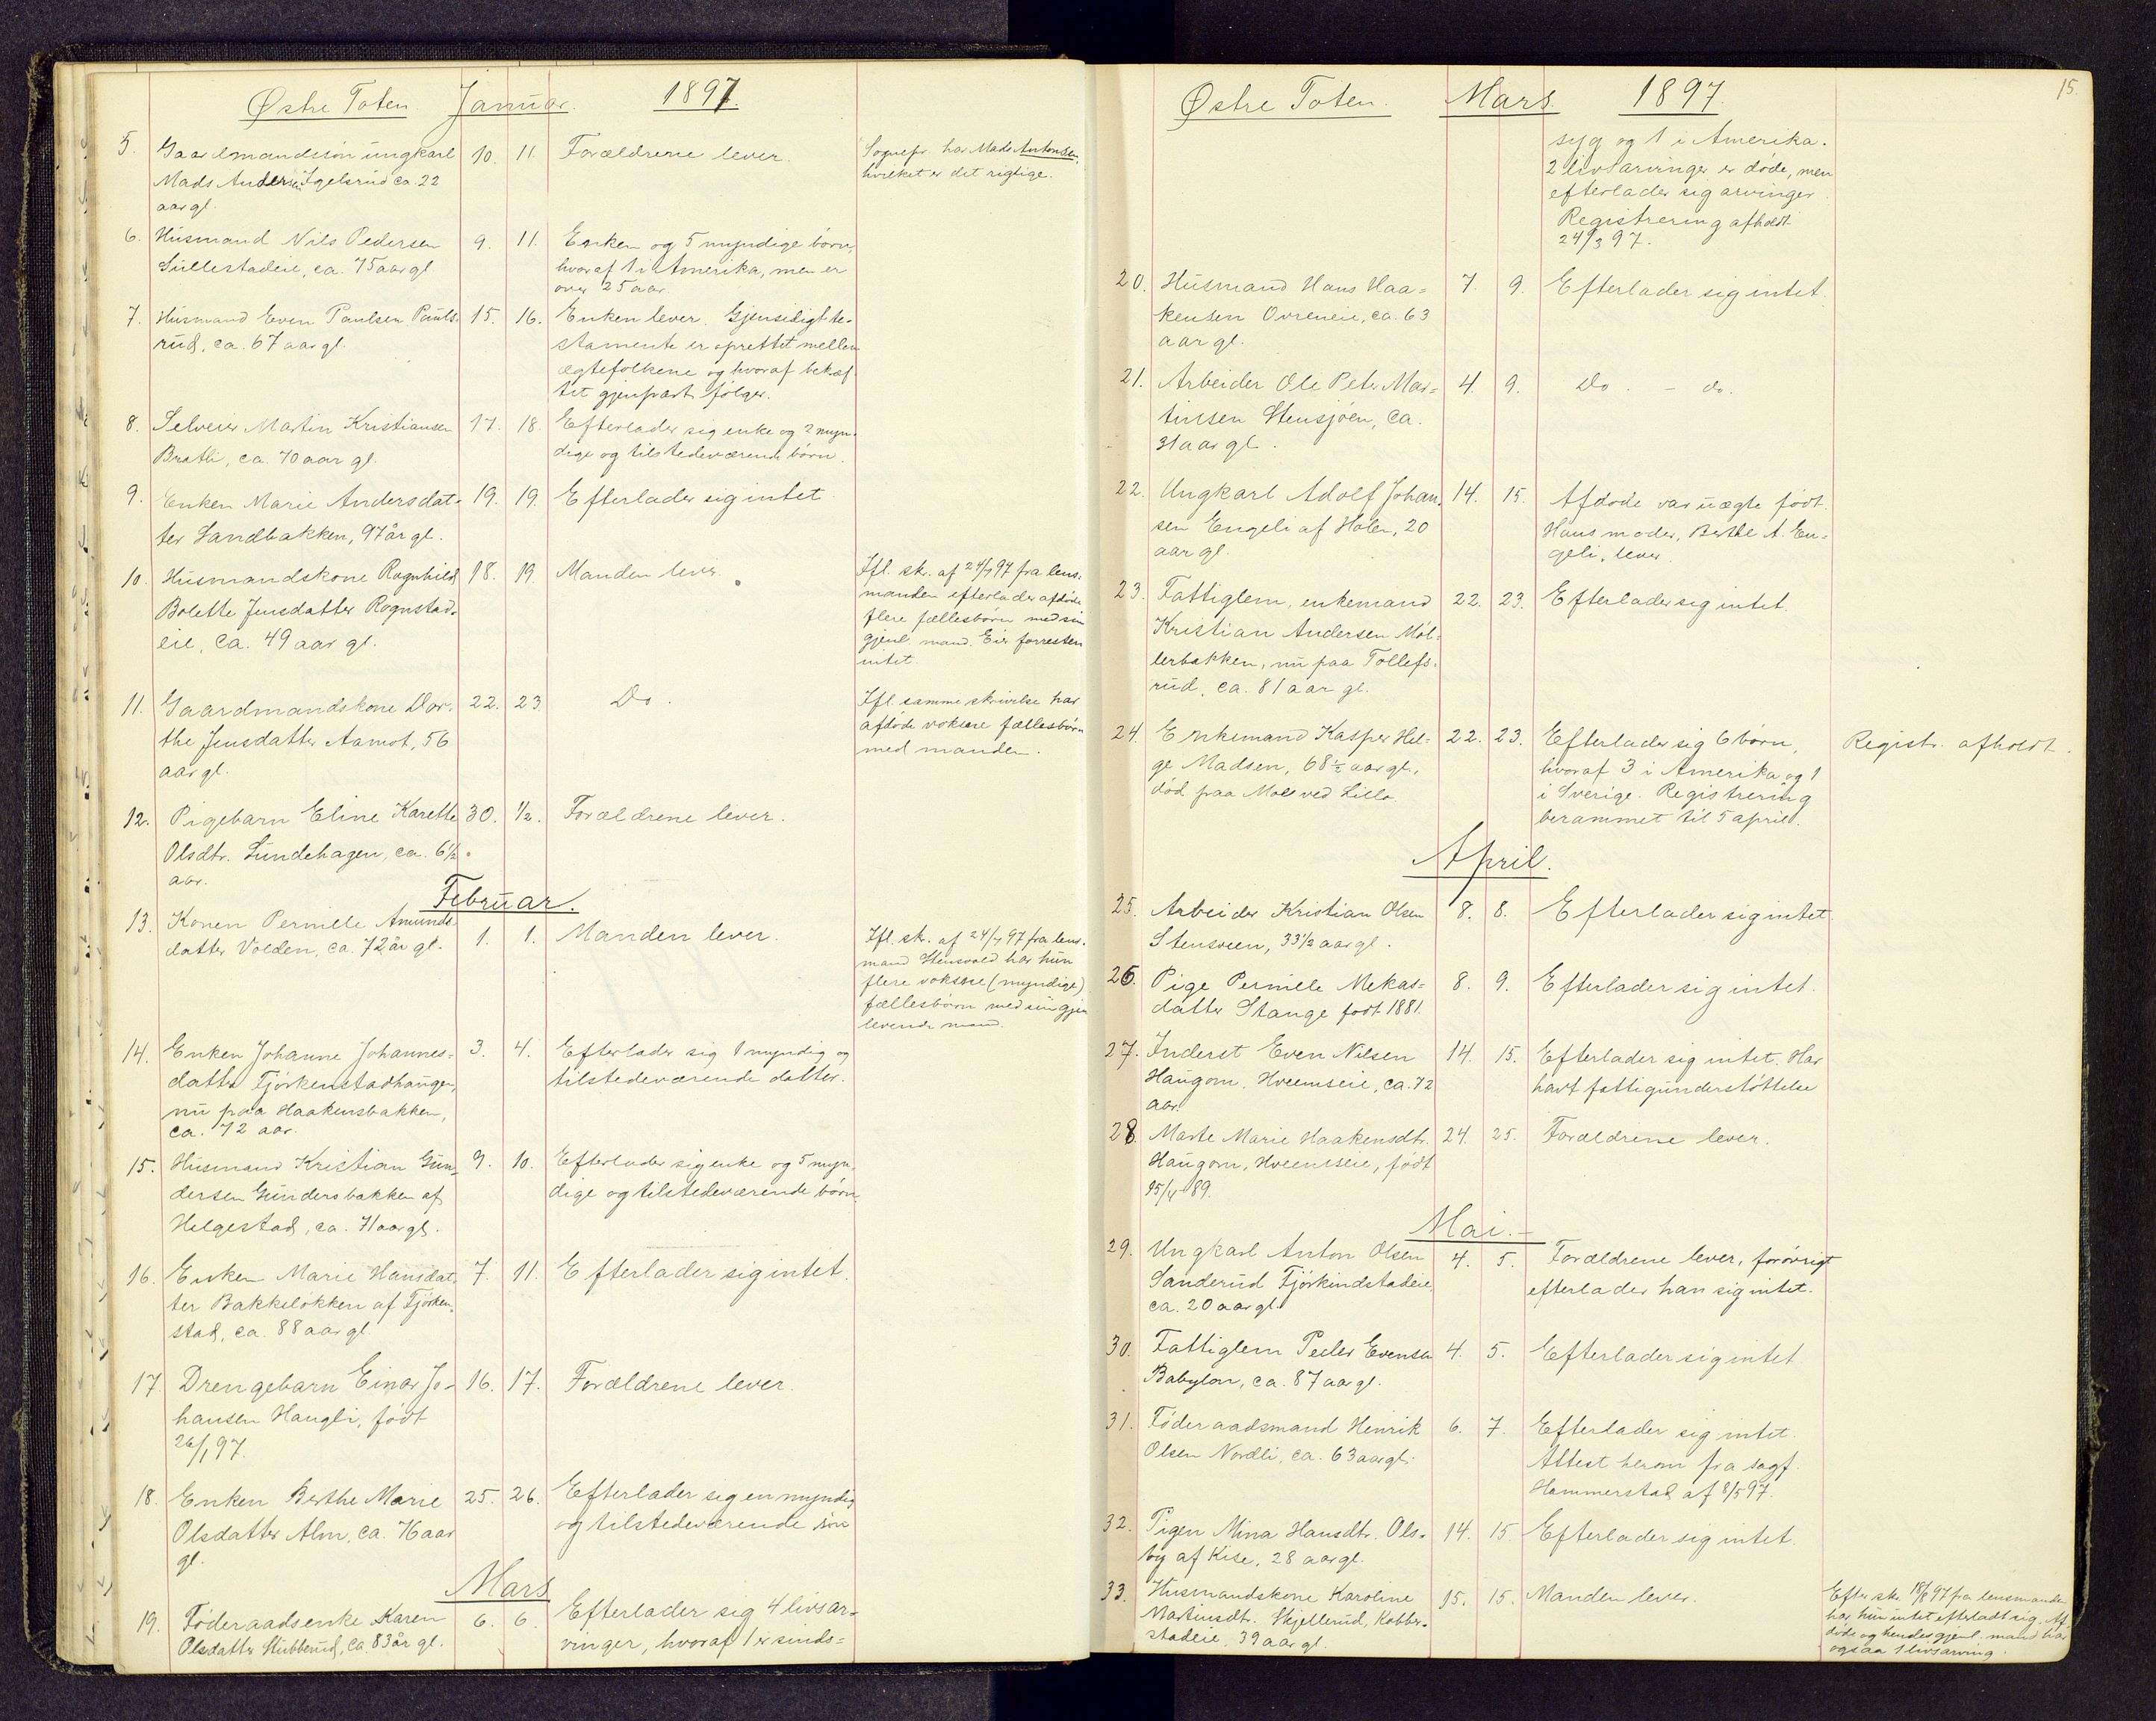 Østre Toten. Januar. 1897.
5. Gaardmandssøn ungkarl 10. 11. Forældrene lever. Sognepr. har Mads Antonsen,
Mads Andersen Igelsrud ca. 22 hvilket er det rigtige.
aar gl.
6. Husmand Nils Pedersen 9. 11. Enken og 5 myndige børn,
Sullestadeie, ca. 75 aar gl hvoraf 1 i Amerika, men er
over 25 aar.
7. Husmand Even Paulsen Pauls- 15. 16. Enken lever. Gjensidigt te-
rud, ca. 67 aar gl. stamente er oprettet mellem
ægtefolkene og hvoraf bekræf-
tet gjenpart følger.
8. Selveier Martin Kristiansen 17. 18. Efterlader sig enke og 2 myn-
Bratli, ca. 70 aar gl. dige og tilstedeværende børn.
9. Enken Marie Andersdat- 19. 19. Efterlader sig intet.
ter Sandbakken, 97 år gl.
10. Husmandskone Ragnhild 18. 19. Manden lever. Ifl. skr. af 24/4 97 fra lens-
Bolette Jensdatter Rognstad- manden efterlader afdøde
eie, ca. 49 aar gl. flere fællesbørn med sin
gjenl. mand. Eier forresten
intet.
11. Gaardmandskone Dor- 22. 23. Do. Ifl. samme skrivelse har
the Jensdatter Aamot, 56 afdøde voksne fællesbørn
aar gl. med manden.
12. Pigebarn Eline Karette 30. 1/2. Forældrene lever.
Olsdtr. Lundehagen, ca. 6 1/2
aar.
Februar.
13. Konen Pernille Amunds- 1. 1. Manden lever. Ifl. skr. af 24/4 97 fra lens-
datter Volden, ca. 72 år gl. mand Stensvold har hun
flere voksne (myndige)
fællesbørn med sin gjen
levende mand.
14. Enken Johanne Johannes- 3. 4. Efterlader sig 1 myndig og
datter Fjørkenstadhaugen, tilstedeværende datter.
nu paa Haakensbakken,
ca. 72 aar.
15. Husmand Kristian Gun- 9. 10. Efterlader sig enke og 5 myn-
dersen Gundersbakken af dige og tilstedeværende børn.
Helgestad, ca. 71 aar gl.
16. Enken Marie Hansdat- 7. 11. Efterlader sig intet.
ter Bakkeløkken af Fjørken-
stad, ca. 88 aar gl
17. Drengebarn Einar Jo- 16. 17. Forældrene lever.
hansen Haugli, født
26/1 97.
18. Enken Berthe Marie 25. 26. Efterlader sig en myndig
Olsdatter Alm, ca. 76 aar og tilstedeværende søn
gl.
Mars
19. Føderaadsenke Karen 6. 6. Efterlader sig 4 livsar-
Olsdatter Stubberud, ca 83 år gl. vinger, hvoraf 1 er sinds-
15.
Østre Toten. Mars 1897.
syg og 1 i Amerika.
2 livsarvinger er døde, men
efterlader sig arvinger.
Registrering afholdt
24/3 97.
20. Husmand Hans Haa- 7. 9. Efterlader sig intet.
kensen Ovreneie, ca. 63
aar gl.
21. Arbeider Ole Peter Mar- 4. 9. Do. - do.
tinsen Stensjøen, ca.
31 aar gl.
22. Ungkarl Adolf Johan- 14. 15. Afdøde var uægte født.
sen Engeli af Holen, 20 Hans moder, Berthe A. En-
aar gl. geli, lever
23. Fattiglem, enkemand 22. 23. Efterlader sig intet.
Kristian Andersen Møl-
lerbakken, nu paa Tollefs-
rud, ca. 81 aar gl.
24. Enkemand Kasper Hel- 22. 23. Efterlader sig 6 børn, Registr. afholdt.
ge Madsen, 68 1/2 aar gl., hvoraf 3 i Amerika og 1
død paa Moe ved Lillo i Sverige. Registrering
berammet til 5 april.
April.
25. Arbeider Kristian Olsen 8. 8. Efterlader sig intet
Stensveen, 33 1/2 aar gl.
26. Pige Pernille Mekas- 8. 9. Efterlader sig intet.
datter Stange født 1881.
27. Inderst Even Nilsen 14. 15. Efterlader sig intet. Har
Haugom, Hveemseie, ca. 72 havt fattigunderstøttelse
aar.
28. Marte Marie Haakensdtr. 24. 25. Forældrene lever.
Haugom, Hveemseie, født
25/4 89.
Mai.
29. Ungkarl Anton Olsen 4. 5. Forældrene lever, forøvrigt
Sanderud Fjørkindstadeie, efterlader han sig intet.
ca. 20 aar gl.
30. Fattiglem Peder Evensen 4. 5. Efterlader sig intet
Babylon, ca. 87 aar gl.
31. Føderaadsmand Henrik 6. 7. Efterlader sig intet.
Olsen Nordli, ca. 63 aar gl. Attest herom fra sagf.
Hammerstad af 8/5 97.
32. Pigen Mina Hansdtr. Ols- 14. 15 Efterlader sig intet.
by af Kise, 28 aar gl.
33. Husmandskone Karoline 15. 15. Manden lever. Efter skr. 18/6 97 fra lensmanden
Martinsdtr. Skjellerud, Kobber- har hun intet efterladt sig. Af-
stadeie, 39 aar gl. døde og hendes gjenl. mand har
ogsaa 1 livsarving.